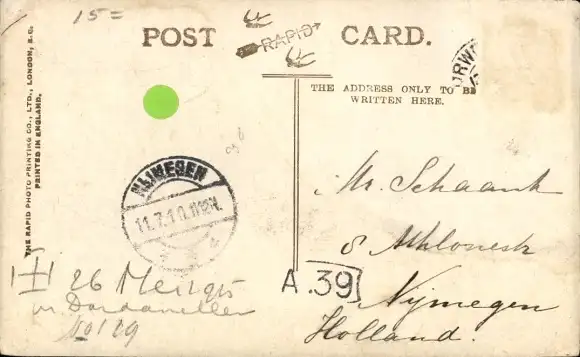 15=
POST CARD.
RAPID
THE ADDRESS ONLY TO BE
WRITTEN HERE.
THE RAPID PHOTO PRINTING CO., LTD., LONDON, E.C.
PRINTED IN ENGLAND.
NIJMEGEN
11.7.10.11
Mr. Schaank
8
Nijmegen
Holland.
A.39
26 Mei 1915
Dardanellen